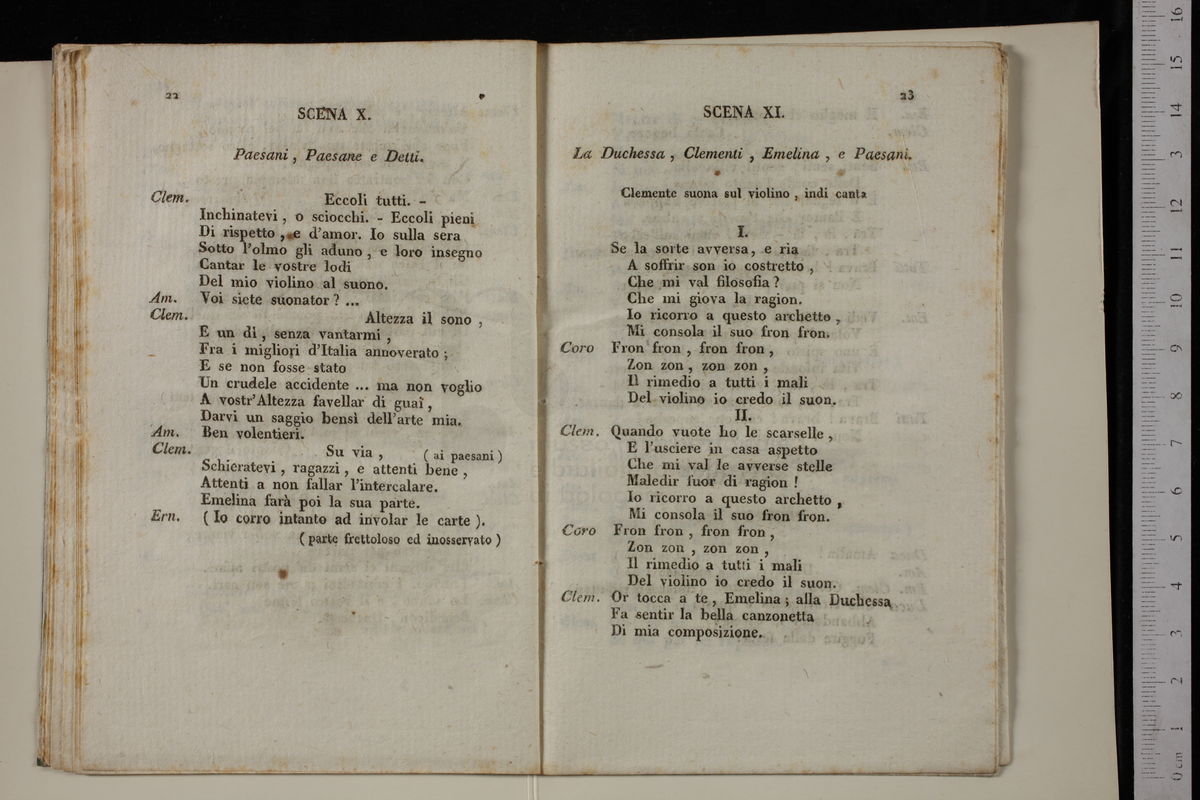 22
SCENA X.
Paesani, Paesane e Detti.
Clem. Eccoli tutti. -
Inchinatevi, o sciocchi. - Eccoli pieni
Di rispetto, e d'amor. Io sulla sera
Sotto l'olmo gli aduno, e loro insegno
Cantar le vostre lodi
Del mio violino al suono.
Am. Voi siete suonator? ...
Clem. Altezza il sono,
E un di, senza vantarmi,
Fra i migliori d'Italia annoverato;
E se non fosse stato
Un crudele accidente ... ma non voglio
A vostr'Altezza favellar di guai,
Darvi un saggio bensì dell'arte mia.
Am. Ben volentieri.
Clem. Su via, ( ai paesani )
Schieratevi, ragazzi, e attenti bene,
Attenti a non fallar l'intercalare.
Emelina farà poi la sua parte.
Ern. ( Io corro intanto ad involar le carte ).
( parte frettoloso ed inosservato )
23
SCENA XI.
La Duchessa, Clementi, Emelina, e Paesani.
Clemente suona sul violino, indi canta
I.
Se la sorte avversa, e ria
A soffrir son io costretto,
Che mi val filosofia?
Che mi giova la ragion.
Io ricorro a questo archetto,
Mi consola il suo fron fron.
Coro Fron fron, fron fron,
Zon zon, zon zon,
Il rimedio a tutti i mali
Del violino io credo il suon.
II.
Clem. Quando vuote ho le scarselle,
E l'usciere in casa aspetto
Che mi val le avverse stelle
Maledir fuor di ragion!
Io ricorro a questo archetto,
Mi consola il suo fron fron.
Coro Fron fron, fron fron,
Zon zon, zon zon,
Il rimedio a tutti i mali
Del violino io credo il suon.
Clem. Or tocca a te, Emelina; alla Duchessa
Fa sentir la bella canzonetta
Di mia composizione.
0 cm 1 2 3 4 5 6 7 8 9 10 11 12 13 14 15 16